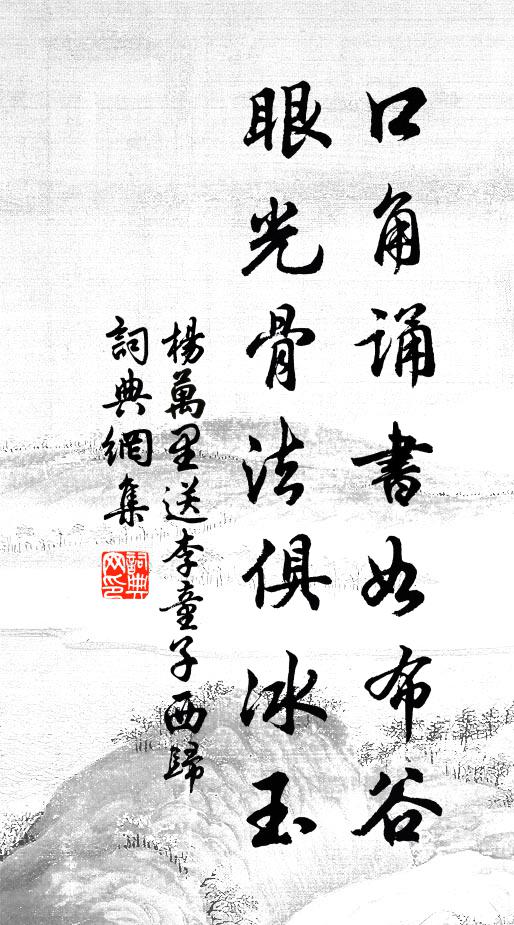 口角誦書如布谷
眼光骨法俱冰玉
楊萬里送李童子西歸
詞典網集
詞典
网印